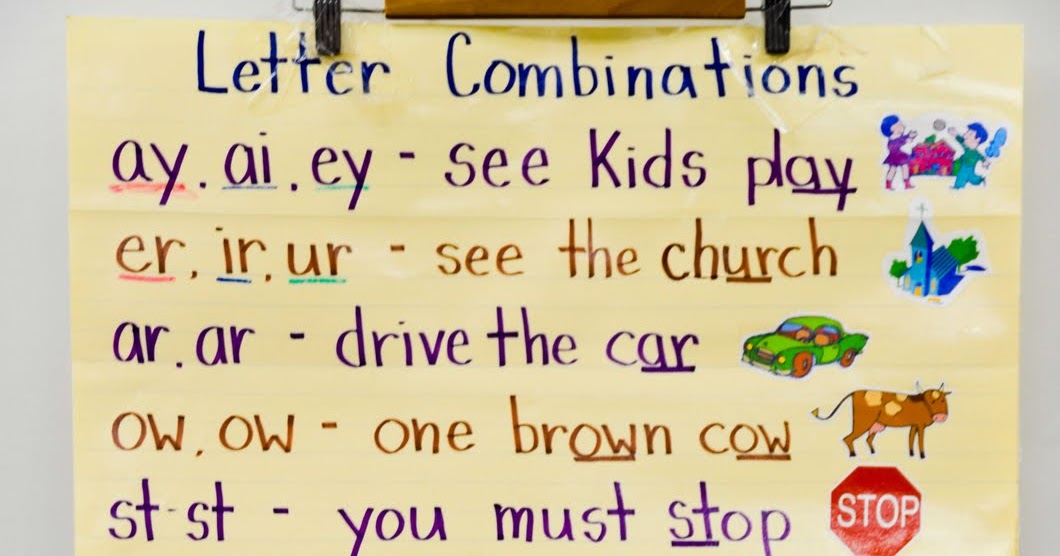 Letter Combinations
ay. ai. ey - see Kids play
er. ir. ur - see the church
ar. ar - drive the car
ow. ow - one brown cow
st-st - you must stop STOP